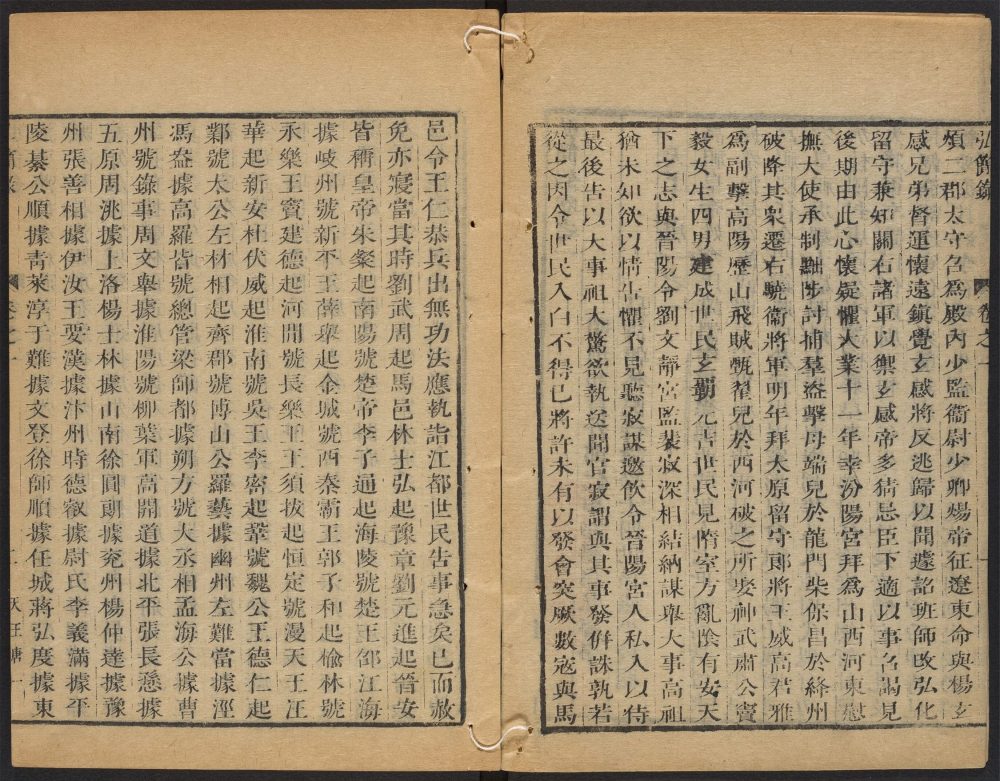 弘簡錄 卷之一
煩二郡太守召為殿內少監衞尉少卿煬帝征遼東命與楊玄
感兄弟督運懷遠鎮覺玄感將反逃歸以聞遽詔班師改弘化
留守兼知關右諸軍以禦玄感帝多猜忌臣下適以事召謁見
後期由此心懷疑懼大業十一年幸汾陽宮拜為山西河東慰
撫大使承制黜陟討捕羣盜擊母端兒於龍門柴保昌於絳州
破降其衆遷右驍衞將軍明年拜太原留守郎將王威高君雅
爲副擊高陽歷山飛賊甄翟兒於西河破之所娶神武肅公竇
毅女生四男建成世民玄霸元吉世民見隋室方亂陰有安天
下之志與晉陽令劉文靜宮監裴寂深相結納謀舉大事高祖
猶未知欲以情告懼不見聽寂謀邀飲令晉陽宮人私入以侍
最後告以大事祖大驚欲執送聞官寂謂與其事發併誅孰若
從之因令世民入白不得已將許未有以發會突厥數寇與馬
邑令王仁恭兵出無功法應執詣江都世民告事急矣已而赦
免亦寢當其時劉武周起馬邑林士弘起豫章劉元進起晉安
皆稱皇帝朱粲起南陽號楚帝李子通起海陵號楚王邵江海
據岐州號新平王薛舉起金城號西秦霸王郭子和起榆林號
永樂王竇建德起河間號長樂王王須拔起恒定號漫天王汪
華起新安杜伏威起淮南號吳王李密起鞏號魏公王德仁起
鄴號太公左材相起齊郡號博山公羅藝據幽州左難當據涇
馮盎據高羅皆號總管梁師都據朔方號大丞相孟海公據曹
州號錄事周文舉據淮陽號柳葉軍高開道據北平張長愻據
五原周洮據上洛楊士林據山南徐圓朗據兗州楊仲達據豫
州張善相據伊汝王要漢據汴州時德叡據尉氏李義滿據平
陵綦公順據靑萊淳于難據文登徐師順據任城蔣弘度據東
卷之一 天王唐一